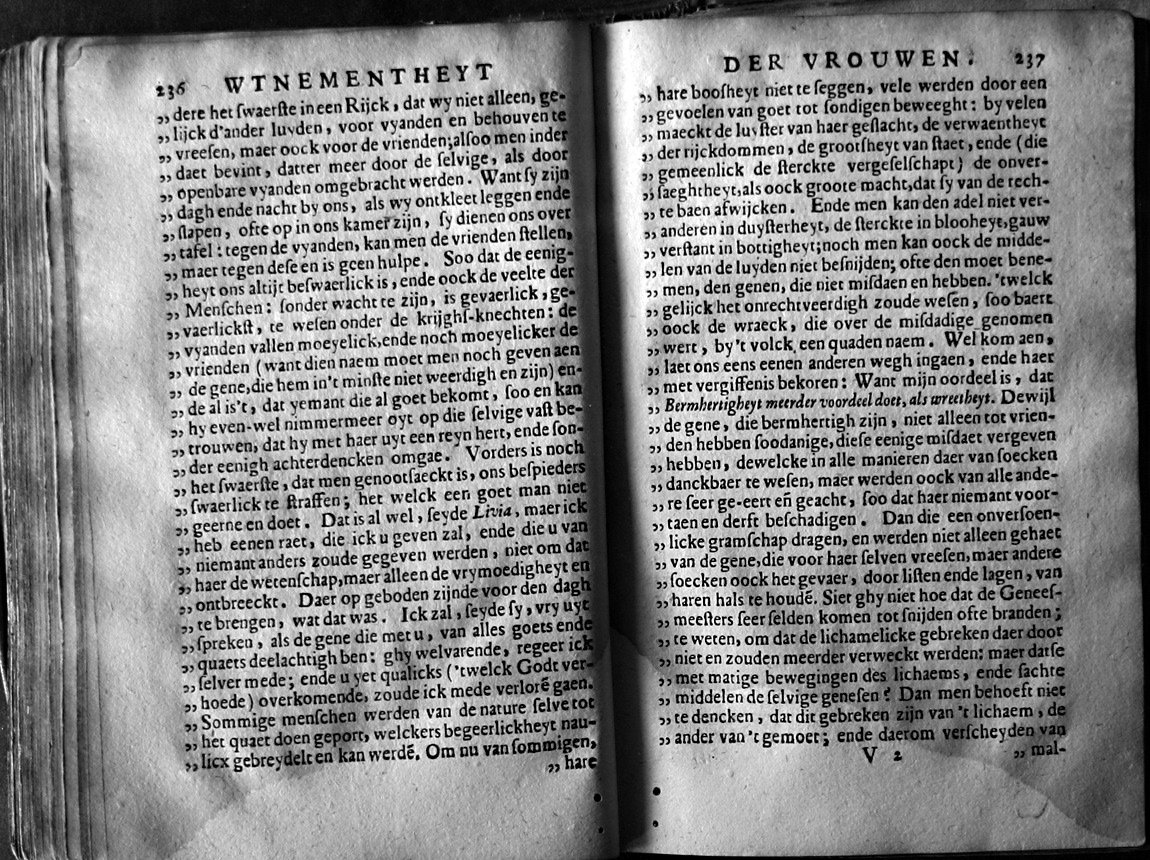 236 WTNEMENTHEYT
„ dere het ſwaerſte in een Rijck, dat wy niet alleen, ge-
„ lijck d'ander luyden, voor vyanden en behouven te
„ vreeſen, maer oock voor de vrienden; alſoo men inder
„ daet bevint, datter meer door de ſelvige, als door
„ openbare vyanden omgebracht werden. Want ſy zijn
„ dagh ende nacht by ons, als wy ontkleet leggen ende
„ ſlapen, ofte op in ons kamer zijn, ſy dienen ons over
„ tafel: tegen de vyanden, kan men de vrienden ſtellen,
„ maer tegen deſe en is geen hulpe. Soo dat de eenig-
„ heyt ons altijt beſwaerlick is, ende oock de veelte der
„ Menſchen: ſonder wacht te zijn, is gevaerlick, ge-
„ vaerlickſt, te weſen onder de krijghſ-knechten: de
„ vyanden vallen moeyelick, ende noch moeyelicker de
„ vrienden (want dien naem moet men noch geven aen
„ de gene, die hem in't minſte niet weerdigh en zijn) en-
„ de al is't, dat yemant die al goet bekomt, ſoo en kan
„ hy even-wel nimmermeer oyt op die ſelvige vaſt be-
„ trouwen, dat hy met haer uyt een reyn hert, ende ſon-
„ der eenigh achterdencken omgae. Vorders is noch
„ het ſwaerſte, dat men genootſaeckt is, ons beſpieders
„ ſwaerlick te ſtraffen; het welck een goet man niet
„ geerne en doet. Dat is al wel, ſeyde Livia, maer ick
„ heb eenen raet, die ick u geven zal, ende die u van
„ niemant anders zoude gegeven werden, niet om dat
„ haer de wetenſchap, maer alleen de vrymoedigheyt en
„ ontbreeckt. Daer op geboden zijnde voor den dagh
„ te brengen, wat dat was. Ick zal, ſeyde ſy, vry uyt
„ ſpreken, als de gene die met u, van alles goets ende
„ quaets deelachtigh ben: ghy welvarende, regeer ick
„ ſelver mede; ende u yet qualicks ('twelck Godt ver-
„ hoede) overkomende, zoude ick mede verlorē gaen.
„ Sommige menſchen werden van de nature ſelve tot
„ het quaet doen geport, welckers begeerlickheyt nau-
„ licx gebreydelt en kan werdē. Om nu van ſommigen,
„ hare
DER VROUWEN. 237
„ hare booſheyt niet te ſeggen, vele werden door een
„ gevoelen van goet tot ſondigen beweeght: by velen
„ maeckt de luyſter van haer geſlacht, de verwaentheyt
„ der rijckdommen, de grootſheyt van ſtaet, ende (die
„ gemeenlick de ſterckte vergeſelſchapt) de onver-
„ ſaeghtheyt, als oock groote macht, dat ſy van de rech-
„ te baen afwijcken. Ende men kan den adel niet ver-
„ anderen in duyſterheyt, de ſterckte in blooheyt, gauw
„ verſtant in bottigheyt; noch men kan oock de midde-
„ len van de luyden niet beſnijden; ofte den moet bene-
„ men, den genen, die niet miſdaen en hebben. 'twelck
„ gelijck het onrechtveerdigh zoude weſen, ſoo baert
„ oock de wraeck, die over de miſdadige genomen
„ wert, by't volck een quaden naem. Wel kom aen,
„ laet ons eens eenen anderen wegh ingaen, ende haer
„ met vergiffenis bekoren: Want mijn oordeel is, dat
„ Bermhertigheyt meerder voordeel doet, als wreetheyt. Dewijl
„ de gene, die bermhertigh zijn, niet alleen tot vrien-
„ den hebben ſoodanige, dieſe eenige miſdaet vergeven
„ hebben, dewelcke in alle manieren daer van ſoecken
„ danckbaer te weſen, maer werden oock van alle ande-
„ re ſeer ge-eert en̄ geacht, ſoo dat haer niemant voor-
„ taen en derft beſchadigen. Dan die een onverſoen-
„ licke gramſchap dragen, en werden niet alleen gehaet
„ van de gene, die voor haer ſelven vreeſen, maer andere
„ ſoecken oock het gevaer, door liſten ende lagen, van
„ haren hals te houdē. Siet ghy niet hoe dat de Geneeſ-
„ meeſters ſeer ſelden komen tot ſnijden ofte branden;
„ te weten, om dat de lichamelicke gebreken daer door
„ niet en zouden meerder verweckt werden; maer datſe
„ met matige bewegingen des lichaems, ende ſachte
„ middelen de ſelvige geneſen? Dan men behoeft niet
„ te dencken, dat dit gebreken zijn van 't lichaem, de
„ ander van't gemoet; ende daerom verſcheyden van
V 2 „ mal-